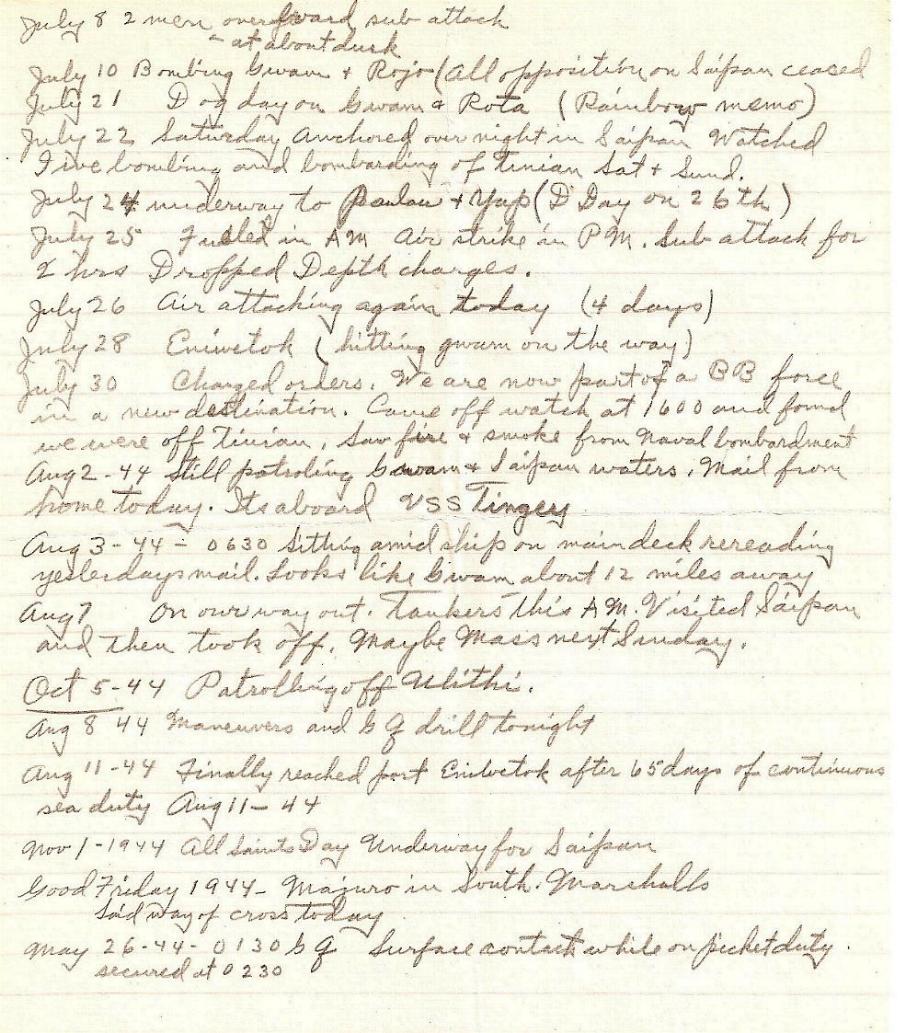 July 8 2 men overboard sub attack
- at about dusk
July 10 Bombing Gwam + Rojo (All opposition on Saipan ceased
July 21 Dog day on Gwam & Rota (Rainbow memo)
July 22 Saturday Anchored over night in Saipan Watched
Dive bombing and bombarding of Tinian Sat + Sund.
July 24 underway to Paulau + Yap (D Day on 26th)
July 25 Fueled in AM Air strike in P.M. Sub attack for
2 hrs Dropped Depth charges.
July 26 Air attacking again today (4 days)
July 28 Eniwetok (hitting gwam on the way)
July 30 Changed orders. We are now part of a BB force
in a new destination. Came off watch at 1600 and found
we were off Tinian. Saw fire & smoke from Naval bombardment
Aug 2-44 Still patroling Gwam + Saipan waters. Mail from
home today. Its aboard USS Tingey
Aug 3-44 - 0630 Sitting amid ship on main deck rereading
yesterdays mail. Looks like Gwam about 12 miles away
Aug 7 On our way out. Tankers this AM. Visited Saipan
and then took off. Maybe Mass next Sunday.
Oct 5-44 Patrolling off Ulithi.
Aug 8 44 Maneuvers and G Q drill tonight
Aug 11-44 Finally reached port Eniwetok after 65 days of continuous
sea duty Aug 11-44
Nov 1-1944 All Saints Day Underway for Saipan
Good Friday 1944- Majuro in South. Marshalls
Said way of cross today
May 26-44- 0130 G Q Surface contact while on picket duty.
secured at 0230